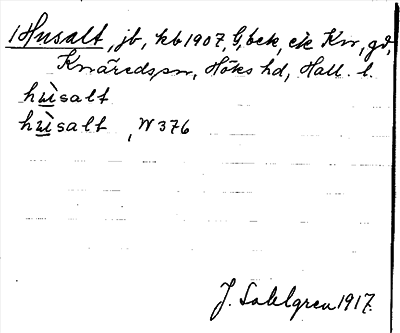 1 Husalt, jb, kb 1907, G, bek, ek Kv, gd,
Knäredspn, Höks hd, Hall. l.
hùsalt
hùsalt, W 376
J. Sahlgren 1917.